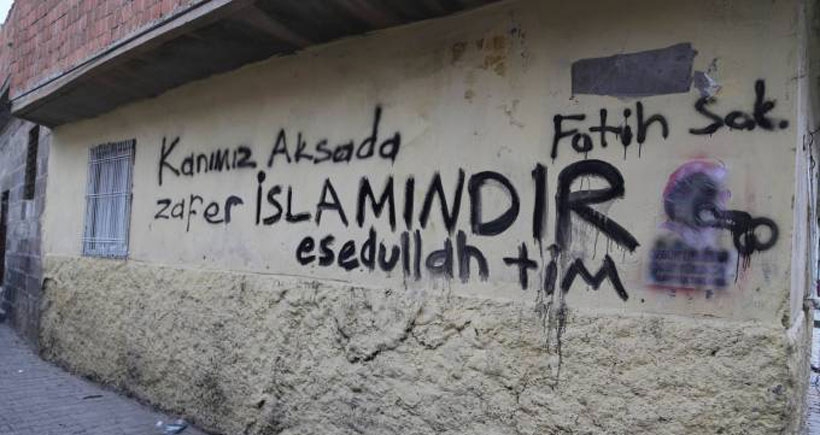 Kanımız Aksada
zafer İSLAMINDIR
esedullah tim
Fatih Sok.